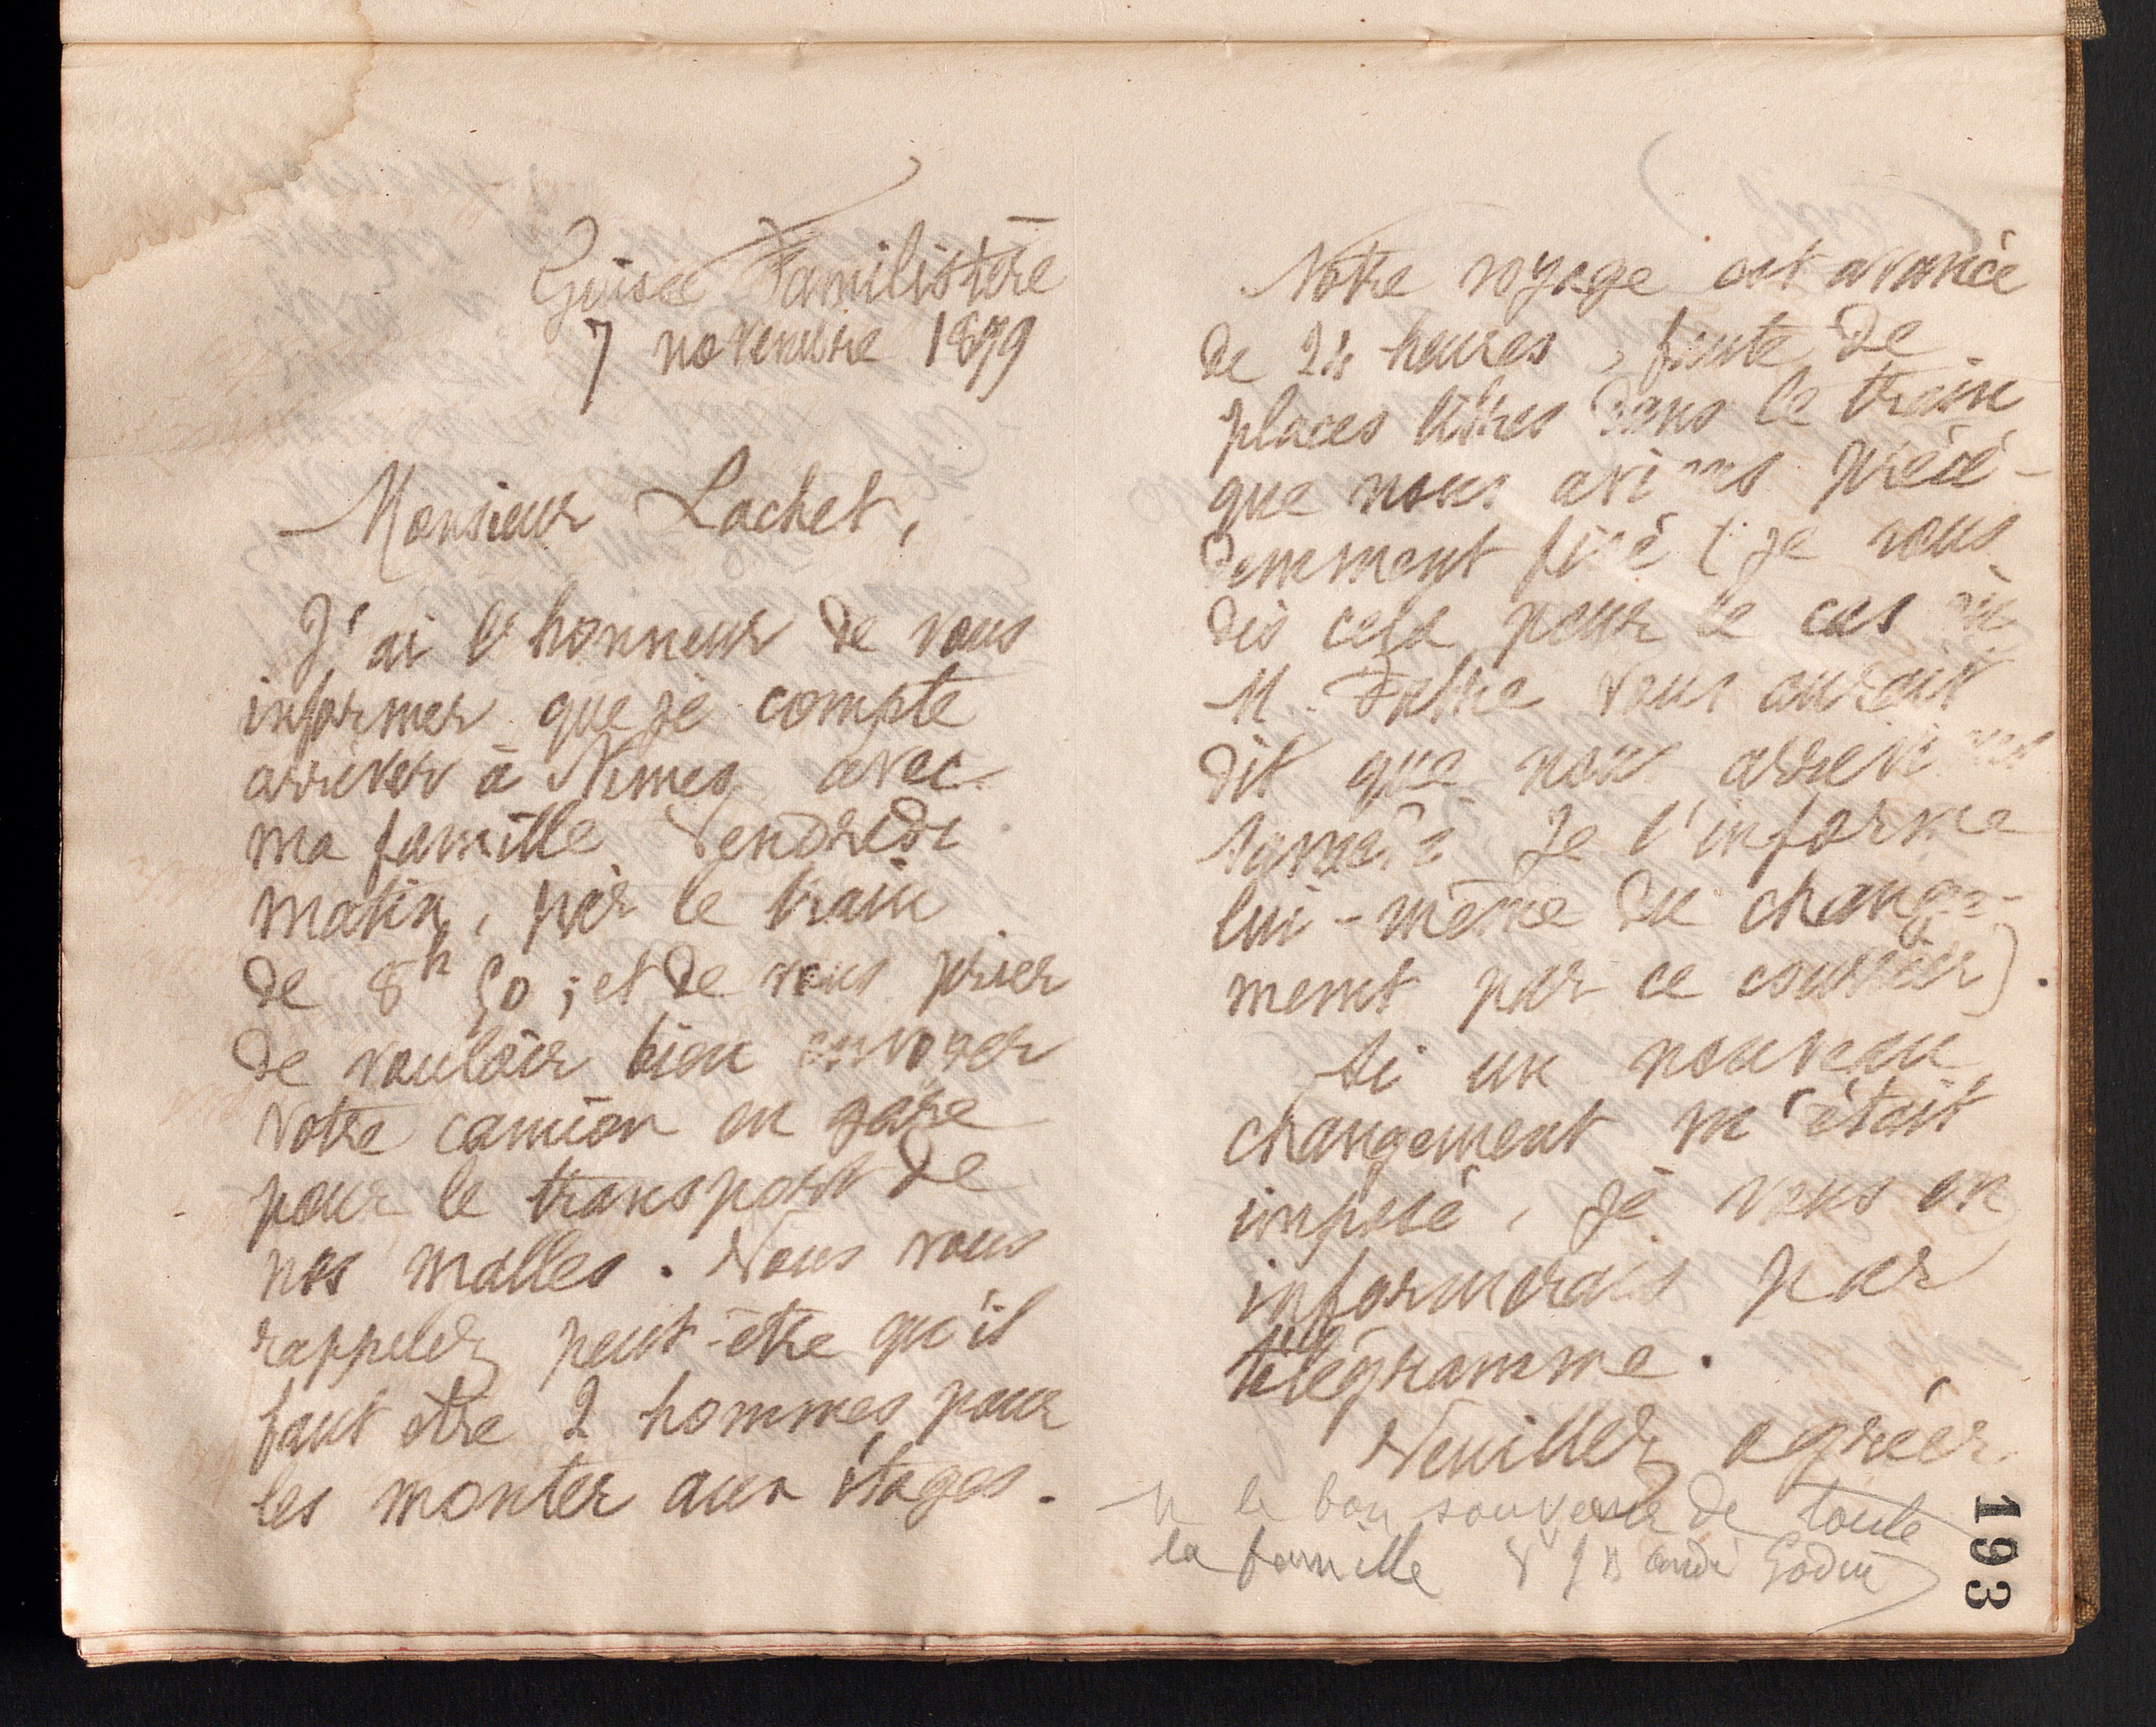 Guise Familistère
7 novembre 1899
Monsieur Lachet,
J'ai l'honneur de vous
informer que je compte
arriver à Nîmes avec
ma famille Vendredi
matin, par le train
de 8h 50 ; et de vous prier
de vouloir bien envoyer
votre camion en gare
pour le transport de
nos malles. Vous vous
rappelez peut-être qu'il
faut être 2 hommes pour
les monter aux étages.
Notre voyage est avancé
de 24 heures, faute de
places libres dans le train
que nous avions précé-
demment fixé (je vous
dis cela pour le cas où
M. Fabre vous aurait
dit que nous arrivions
samedi Je l'informe
lui-même du change-
ment par ce courrier).
Si un nouveau
changement m'était
imposé, je vous en
informerais par
télégramme.
Veuillez agréer
M le bon souvenir de toute
la famille Godin
193